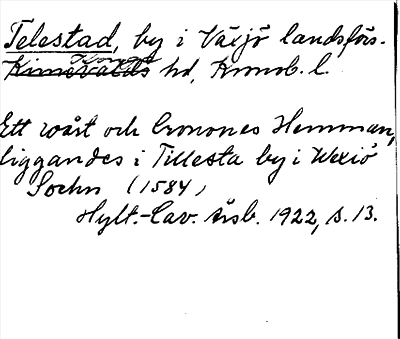 Telestad, by i Växjö landsförs.
Konga
Kinnevalds hd, Kronob. l.
Ett wårt och Cronones Hemman,
liggandes i Tillesta by i Wexiö
Sochn (1584)
Hylt.-Cav. Årsb. 1922, s. 13.